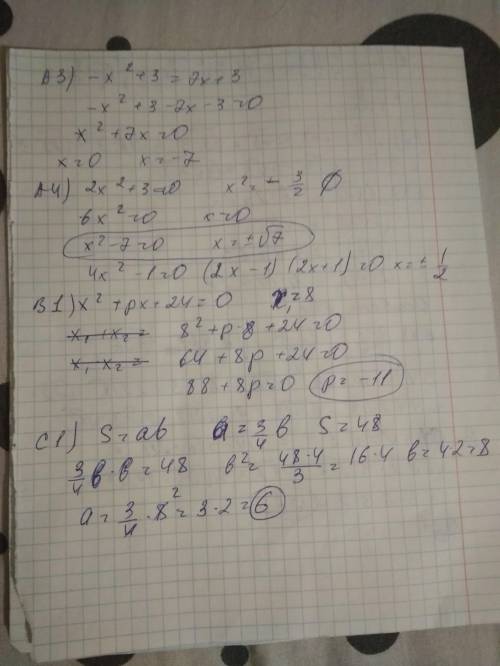 А3) -x² + 3 = 7x + 3
-x² + 3 - 7x - 3 = 0
x² + 7x = 0
x = 0 x = -7
А4) 2x² + 3 = 0 x² = - 3/2 ∅
6x² = 0 x = 0
x² - 7 = 0 x = ±√7
4x² - 1 = 0 (2x - 1) (2x + 1) = 0 x = ± 1/2
В1) x² + px + 24 = 0 x₁ = 8
x₁ + x₂ = 8² + p·8 + 24 = 0
x₁ x₂ = 64 + 8p + 24 = 0
88 + 8p = 0 p = -11
С1) S = ab a = 3/4 b S = 48
3/4 b·b = 48 b² = 48·4/3 = 16·4 b = 4·2 = 8
a = 3/4 · 8² = 3·2 = 6